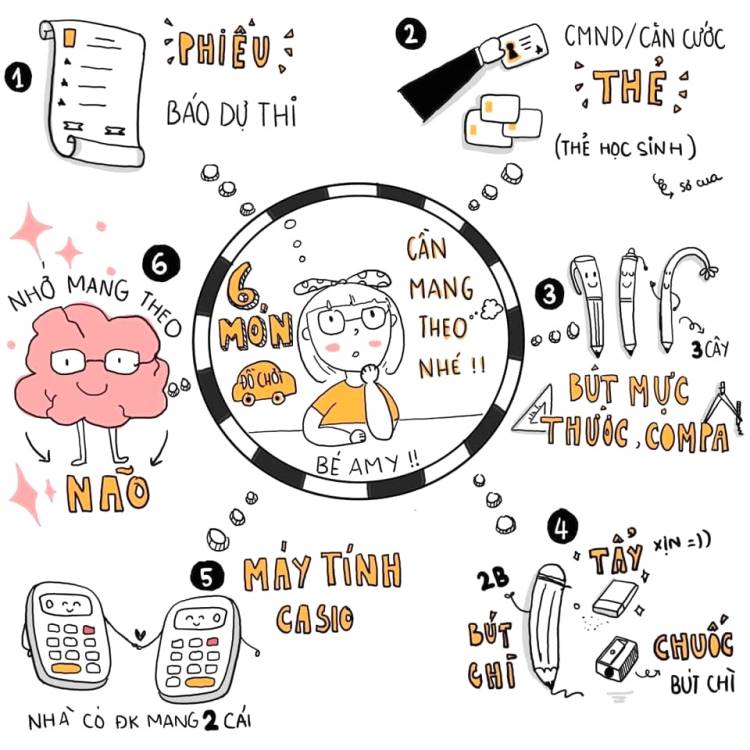 6
MÓN
ĐỒ CHƠI
CẦN
MANG
THEO
NHÉ !!
BÉ AMY !!
1
PHIẾU
BÁO DỰ THI
2
CMND/CĂN CƯỚC
THẺ
(THẺ HỌC SINH)
sơ cua
3
3 CÂY
BÚT MỰC
THƯỚC, COMPA
4
TẨY XỊN =))
2B
BÚT
CHÌ
CHUỐC
BÚT CHÌ
5
MÁY TÍNH
CASIO
0
0
NHÀ CÓ ĐK MANG 2 CÁI
6
NHỚ MANG THEO
NÃO